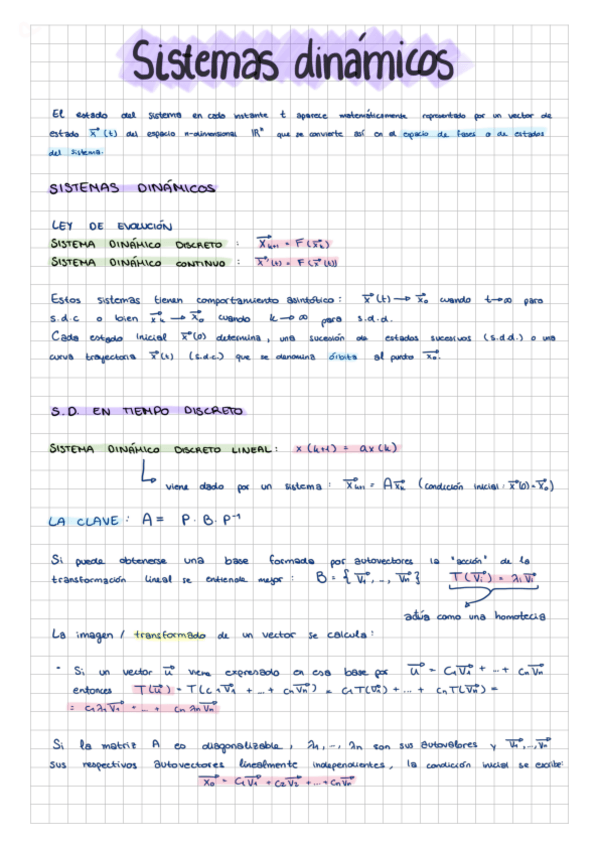 Sistemas dinámicos
El estado del sistema en cada instante t aparece matemáticamente representado por un vector de
estado x⃗(t) del espacio n-dimensional ℝⁿ que se convierte así en el espacio de fases o de estados
del sistema.
SISTEMAS DINÁMICOS
LEY DE EVOLUCIÓN
SISTEMA DINÁMICO DISCRETO : x⃗ₖ₊₁ = F(x⃗ₖ)
SISTEMA DINÁMICO CONTINUO : x⃗'(t) = F(x⃗(t))
Estos sistemas tienen comportamiento asintótico : x⃗(t) → x⃗₀ cuando t→∞ para
s.d.c o bien x⃗ₖ → x⃗₀ cuando k→∞ para s.d.d.
Cada estado inicial x⃗(0) determina, una sucesión de estados sucesivos (s.d.d.) o una
curva trayectoria x⃗(t) (s.d.c.) que se denomina órbita al punto x⃗₀.
S.D. EN TIEMPO DISCRETO
SISTEMA DINÁMICO DISCRETO LINEAL : x(k+1) = ax(k)
viene dado por un sistema : x⃗ₖ₊₁ = Ax⃗ₖ (condición inicial : x⃗(0)=x⃗₀)
LA CLAVE : A = P · B · P⁻¹
Si puede obtenerse una base formada por autovectores la "acción" de la
transformación lineal se entiende mejor : B = { v⃗₁, .., v⃗ₙ } T(v⃗ᵢ) = λᵢ v⃗ᵢ
actúa como una homotecia
La imagen / transformado de un vector se calcula :
· Si un vector u⃗ viene expresado en esa base por u⃗ = c₁v⃗₁ + ... + cₙv⃗ₙ
entonces T(u⃗) = T(c₁v⃗₁ + ... + cₙv⃗ₙ) = c₁T(v⃗₁) + ... + cₙT(v⃗ₙ) =
= c₁λ₁v⃗₁ + ... + cₙλₙv⃗ₙ
Si la matriz A es diagonalizable, λ₁, .., λₙ son sus autovalores y v⃗₁, .., v⃗ₙ
sus respectivos autovectores linealmente independientes, la condición inicial se escribe:
x⃗₀ = c₁v⃗₁ + c₂v⃗₂ + ... + cₙv⃗ₙ